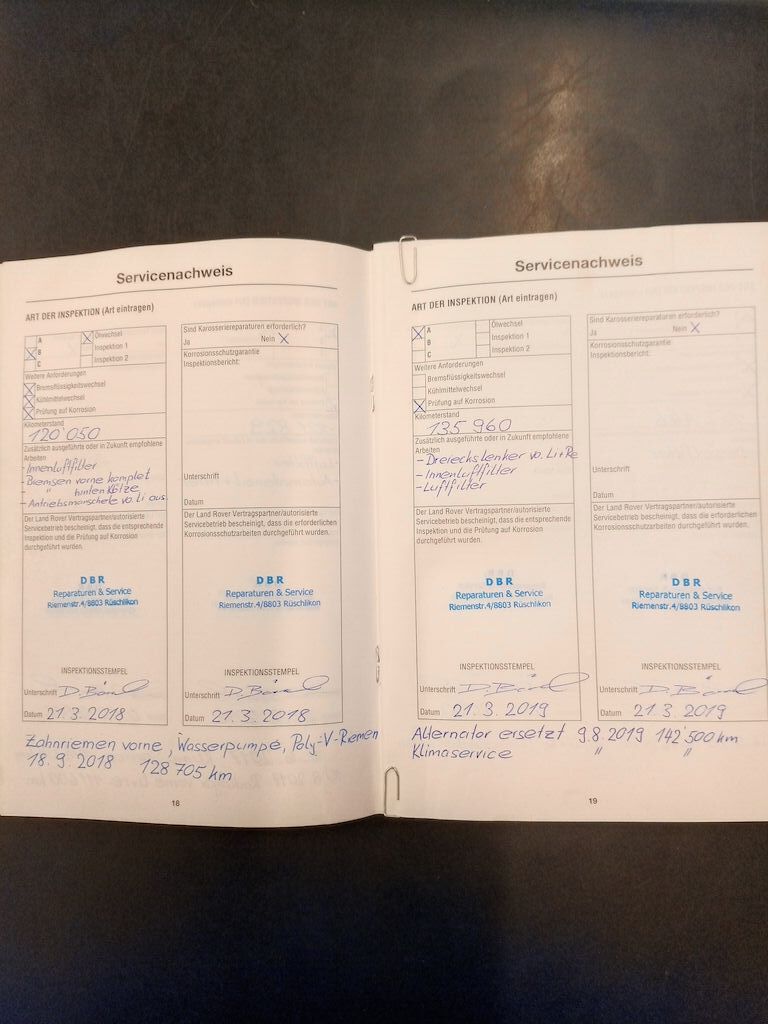 Servicenachweis
ART DER INSPEKTION (Art eintragen)
A
B
C
Ölwechsel
Inspektion 1
Inspektion 2
Weitere Anforderungen
Bremsflüssigkeitswechsel
Kühlmittelwechsel
Prüfung auf Korrosion
Kilometerstand
120'050
Zusätzlich ausgeführte oder in Zukunft empfohlene
Arbeiten
- Innenluftfilter
- Bremsen vorne komplet
- " hinten Klötze
- Antriebsmanschete vo. Li aus.
Der Land Rover Vertragspartner/autorisierte
Servicebetrieb bescheinigt, dass die entsprechende
Inspektion und die Prüfung auf Korrosion
durchgeführt wurden.
DBR
Reparaturen & Service
Riemenstr.4/8803 Rüschlikon
INSPEKTIONSSTEMPEL
Unterschrift
Datum 21.3.2018
Sind Karosseriereparaturen erforderlich?
Ja Nein X
Korrosionsschutzgarantie
Inspektionsbericht:
Unterschrift
Datum
Der Land Rover Vertragspartner/autorisierte
Servicebetrieb bescheinigt, dass die erforderlichen
Korrosionsschutzarbeiten durchgeführt wurden.
DBR
Reparaturen & Service
Riemenstr.4/8803 Rüschlikon
INSPEKTIONSSTEMPEL
Unterschrift
Datum 21.3.2018
Zahnriemen vorne, Wasserpumpe, Poly-V-Riemen
18.9.2018 128705 km
18
Servicenachweis
ART DER INSPEKTION (Art eintragen)
A
B
C
Ölwechsel
Inspektion 1
Inspektion 2
Weitere Anforderungen
Bremsflüssigkeitswechsel
Kühlmittelwechsel
Prüfung auf Korrosion
Kilometerstand
135960
Zusätzlich ausgeführte oder in Zukunft empfohlene
Arbeiten
- Dreieckslenker vo. Li+Re
- Innenluftfilter
- Luftfilter
Der Land Rover Vertragspartner/autorisierte
Servicebetrieb bescheinigt, dass die entsprechende
Inspektion und die Prüfung auf Korrosion
durchgeführt wurden.
DBR
Reparaturen & Service
Riemenstr.4/8803 Rüschlikon
INSPEKTIONSSTEMPEL
Unterschrift
Datum 21.3.2019
Sind Karosseriereparaturen erforderlich?
Ja Nein X
Korrosionsschutzgarantie
Inspektionsbericht:
Unterschrift
Datum
Der Land Rover Vertragspartner/autorisierte
Servicebetrieb bescheinigt, dass die erforderlichen
Korrosionsschutzarbeiten durchgeführt wurden.
DBR
Reparaturen & Service
Riemenstr.4/8803 Rüschlikon
INSPEKTIONSSTEMPEL
Unterschrift
Datum 21.3.2019
Alternator ersetzt 9.8.2019 142'500km
Klimaservice " "
19